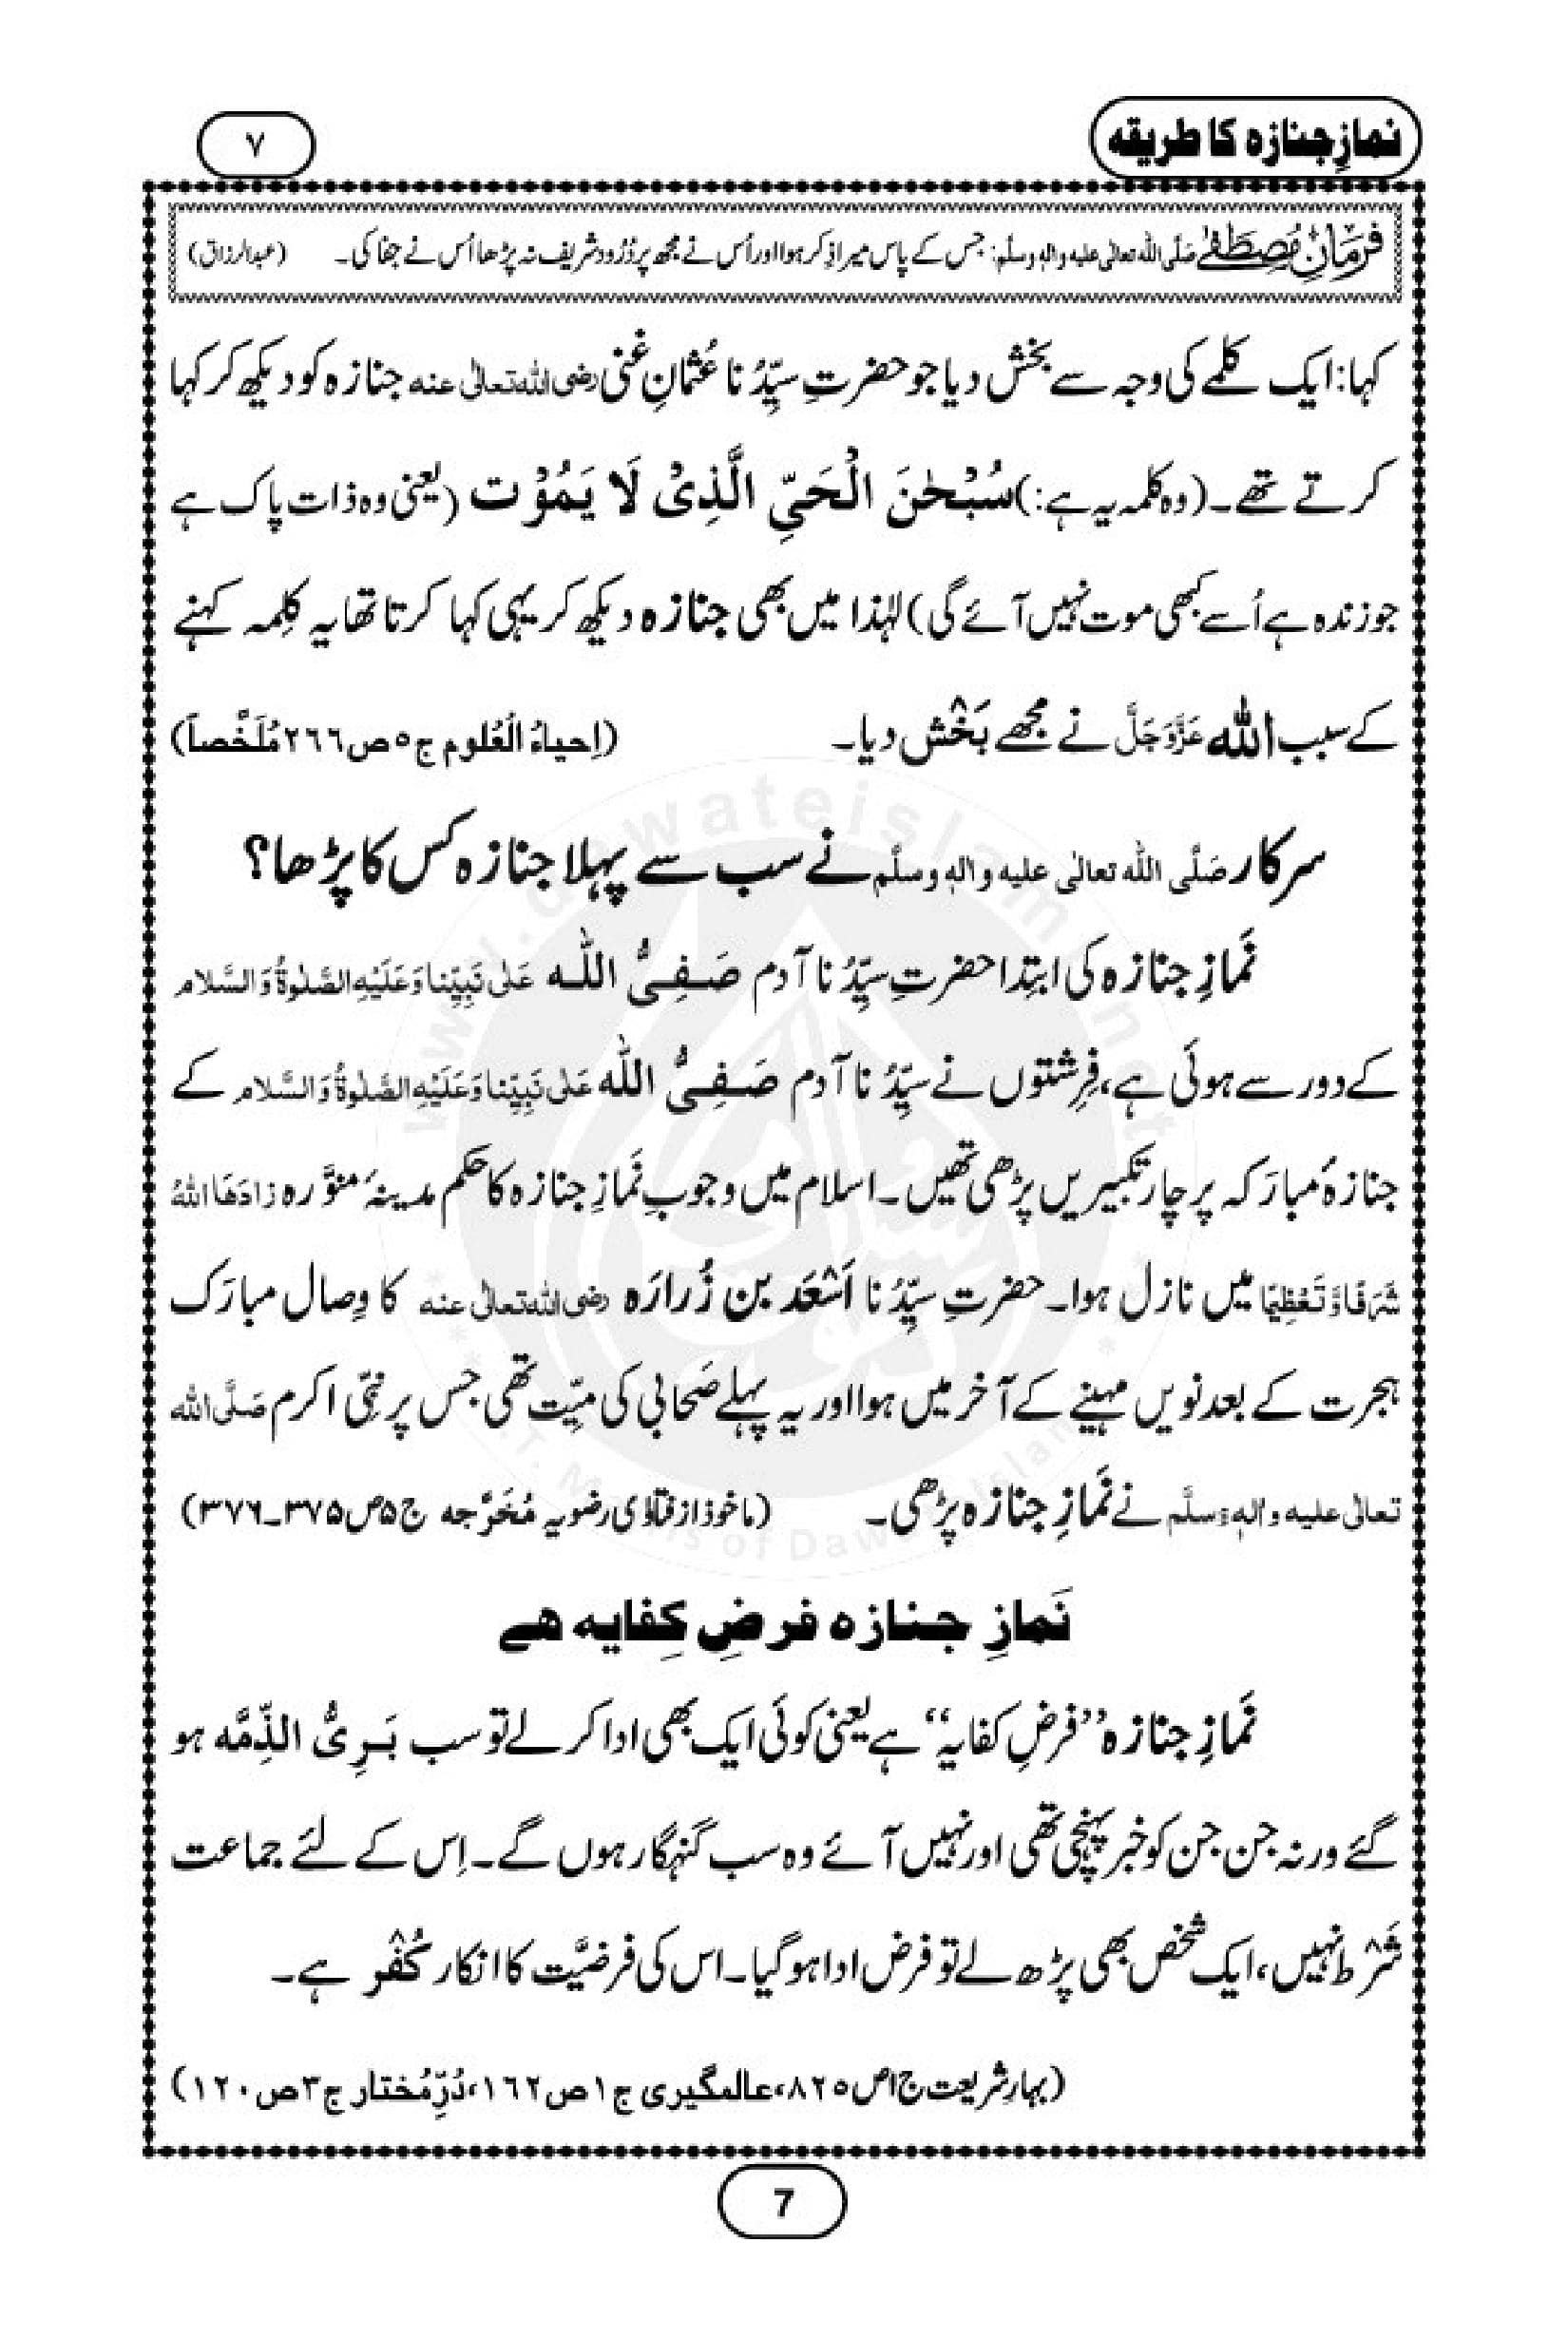 نمازِ جنازہ کا طریقہ
۷
فرمانِ مصطفےٰ صَلَّی اللہ تعالٰی علیہ واٰلہٖ وسلَّم: جس کے پاس میرا ذِکر ہوا اور اُس نے مجھ پر دُرُود شریف نہ پڑھا اُس نے جفا کی۔ (عبدالرزاق)
کہا: ایک کلمے کی وجہ سے بخش دیا جو حضرتِ سیِّدُنا عُثمانِ غنی رضی اللہ تعالٰی عنہ جنازہ کو دیکھ کر کہا
کرتے تھے۔ (وہ کلمہ یہ ہے:) سُبْحٰنَ الْحَیِّ الَّذِیْ لَا یَمُوْت (یعنی وہ ذات پاک ہے
جو زندہ ہے اُسے کبھی موت نہیں آئے گی) لہٰذا میں بھی جنازہ دیکھ کر یہی کہا کرتا تھا یہ کلِمہ کہنے
کے سبب اللہ عَزَّوَجَلَّ نے مجھے بَخْش دیا۔ (اِحیاءُ الْعُلوم ج٥ ص٢٦٦ مُلَخَّصاً)
سرکار صَلَّی اللہ تعالٰی علیہ واٰلہٖ وسلَّم نے سب سے پہلا جنازہ کس کا پڑھا؟
نَمازِ جنازہ کی ابتِدا حضرتِ سیِّدُنا آدم صَفِیُّ اللہ عَلٰی نَبِیِّنا وَعَلَیْہِ الصَّلٰوۃُ وَالسَّلام
کے دور سے ہوئی ہے، فِرِشتوں نے سیِّدُنا آدم صَفِیُّ اللہ عَلٰی نَبِیِّنا وَعَلَیْہِ الصَّلٰوۃُ وَالسَّلام کے
جنازۂ مُبارَکہ پر چار تکبیریں پڑھی تھیں۔ اسلام میں وجوبِ نَمازِ جنازہ کا حکم مدینۂ منوَّرہ زادَھَا اللہُ
شَرَفًا وَّ تَعْظِیْمًا میں نازل ہوا۔ حضرتِ سیِّدُنا اَسْعَد بن زُرارَہ رضی اللہ تعالٰی عنہ کا وِصال مبارَک
ہجرت کے بعد نویں مہینے کے آخر میں ہوا اور یہ پہلے صَحابی کی میّت تھی جس پر نبیِّ اکرم صَلَّی اللہ
تعالٰی علیہ واٰلہٖ وسلَّم نے نَمازِ جنازہ پڑھی۔ (ماخوذ از فتاوٰی رضویہ مُخَرَّجہ ج۵ ص۳۷۵۔۳۷۶)
نَمازِ جنازہ فرضِ کِفایہ ہے
نَمازِ جنازہ ’’فرضِ کفایہ‘‘ ہے یعنی کوئی ایک بھی ادا کر لے تو سب بَرِیُّ الذِّمَّہ ہو
گئے ورنہ جن جن کو خبر پہنچی تھی اور نہیں آئے وہ سب گنہگار ہوں گے۔ اِس کے لئے جماعت
شَرْط نہیں، ایک شخص بھی پڑھ لے تو فرض ادا ہو گیا۔ اس کی فرضیَّت کا انکار کُفْر ہے۔
(بہارِ شریعت ج۱ ص ۸۲۵، عالمگیری ج١ ص ١٦٢، دُرِّمُختار ج٣ ص ١٢٠)
7
www.dawateislami.net